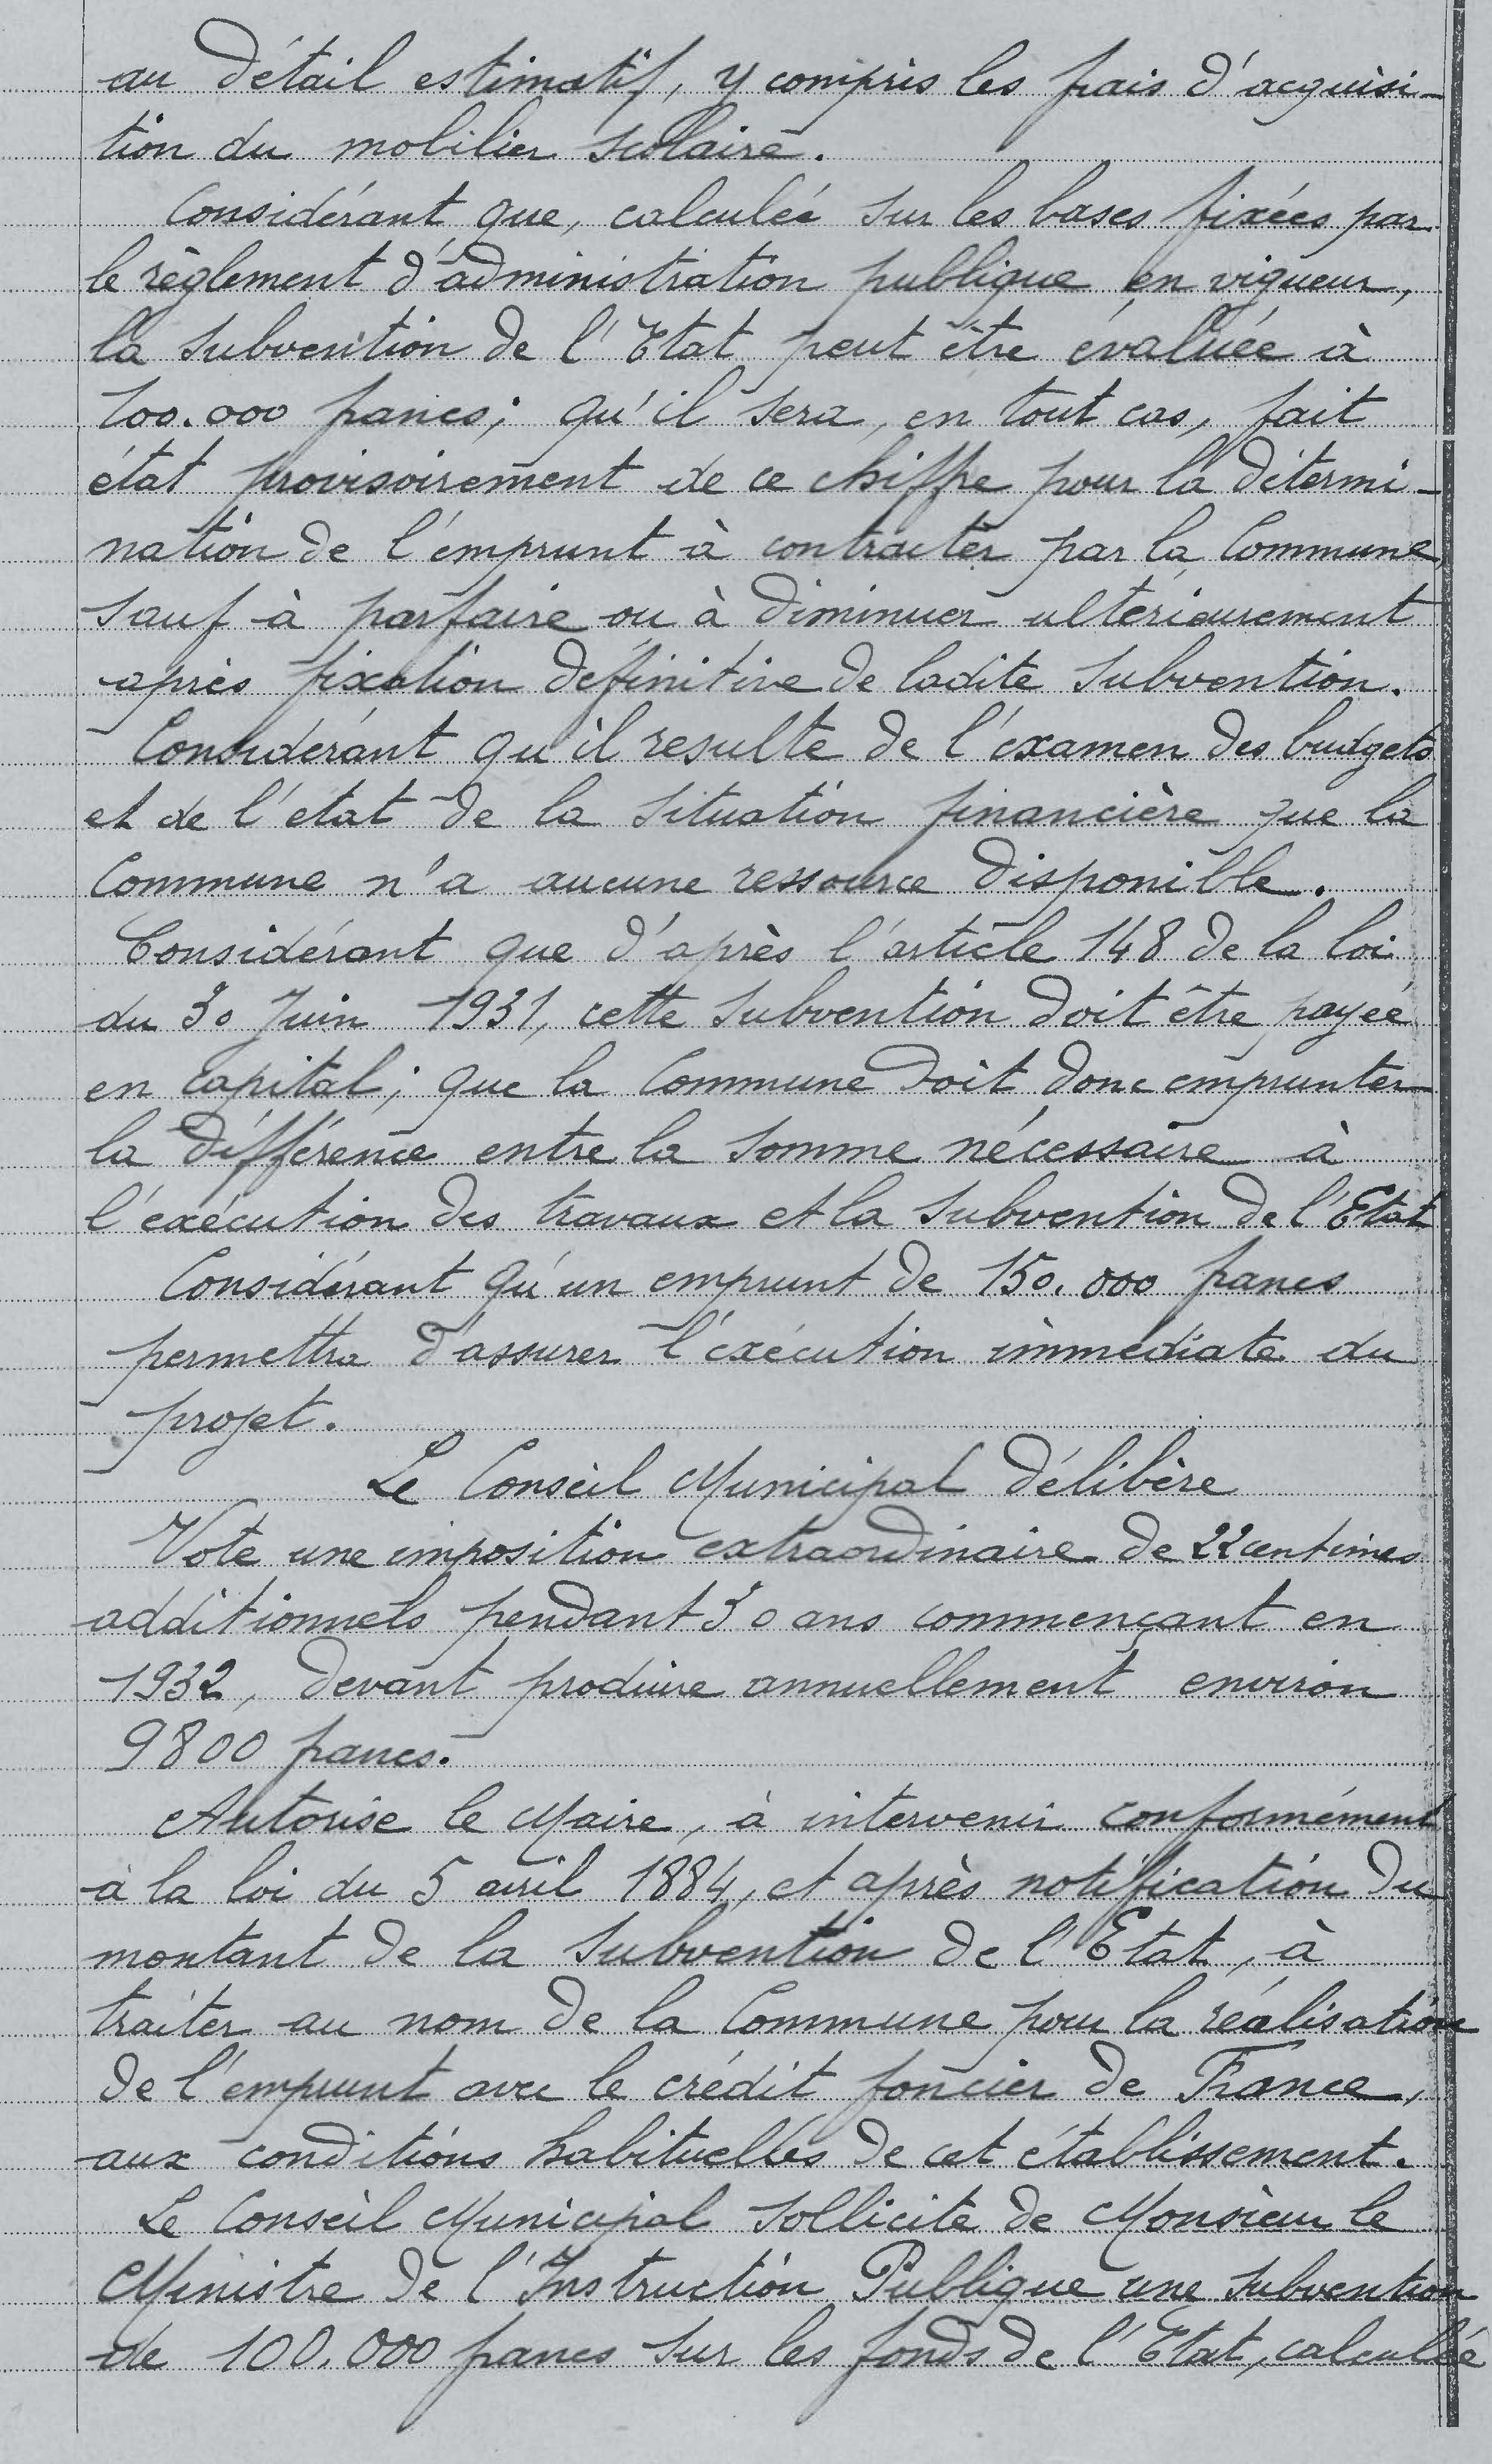 au détail estimatif, y compris les frais d'acquisi-
tion du mobilier scolaire.
Considérant que, calculée sur les bases fixées par
le règlement d'administration publique en vigueur,
la subvention de l'Etat peut être évaluée à
100.000 francs; qu'il sera, en tout cas, fait
état provisoirement de ce chiffre pour la détermi-
nation de l'emprunt à contracter par la Commune,
sauf à parfaire ou à diminuer ultérieurement
après fixation définitive de ladite subvention.
Considérant qu'il resulte de l'examen des budgets
et de l'état de la situation financière que la
Commune n'a aucune ressource disponible.
Considérant que d'après l'article 148 de la loi
du 30 Juin 1931, cette subvention doit être payée
en capital; que la Commune doit donc emprunter
la différence entre la somme nécessaire à
l'exécution des travaux et la subvention de l'Etat
Considérant qu'un emprunt de 150.000 francs
permettra d'assurer l'exécution immédiate du
projet.
Le Conseil Municipal délibère
Vote une imposition extraordinaire de 22 centimes
additionnels pendant 30 ans commençant en
1932, devant produire annuellement environ
9800 francs.
Autorise le Maire, à intervenir conformément
à la loi du 5 avril 1884, et après notification du
montant de la subvention de l'Etat, à
traiter au nom de la Commune pour la réalisation
de l'emprunt avec le crédit foncier de France,
aux conditions habituelles de cet établissement.
Le Conseil Municipal sollicite de Monsieur le
Ministre de l'Instruction Publique une subvention
de 100.000 francs sur les fonds de l'Etat, calculée